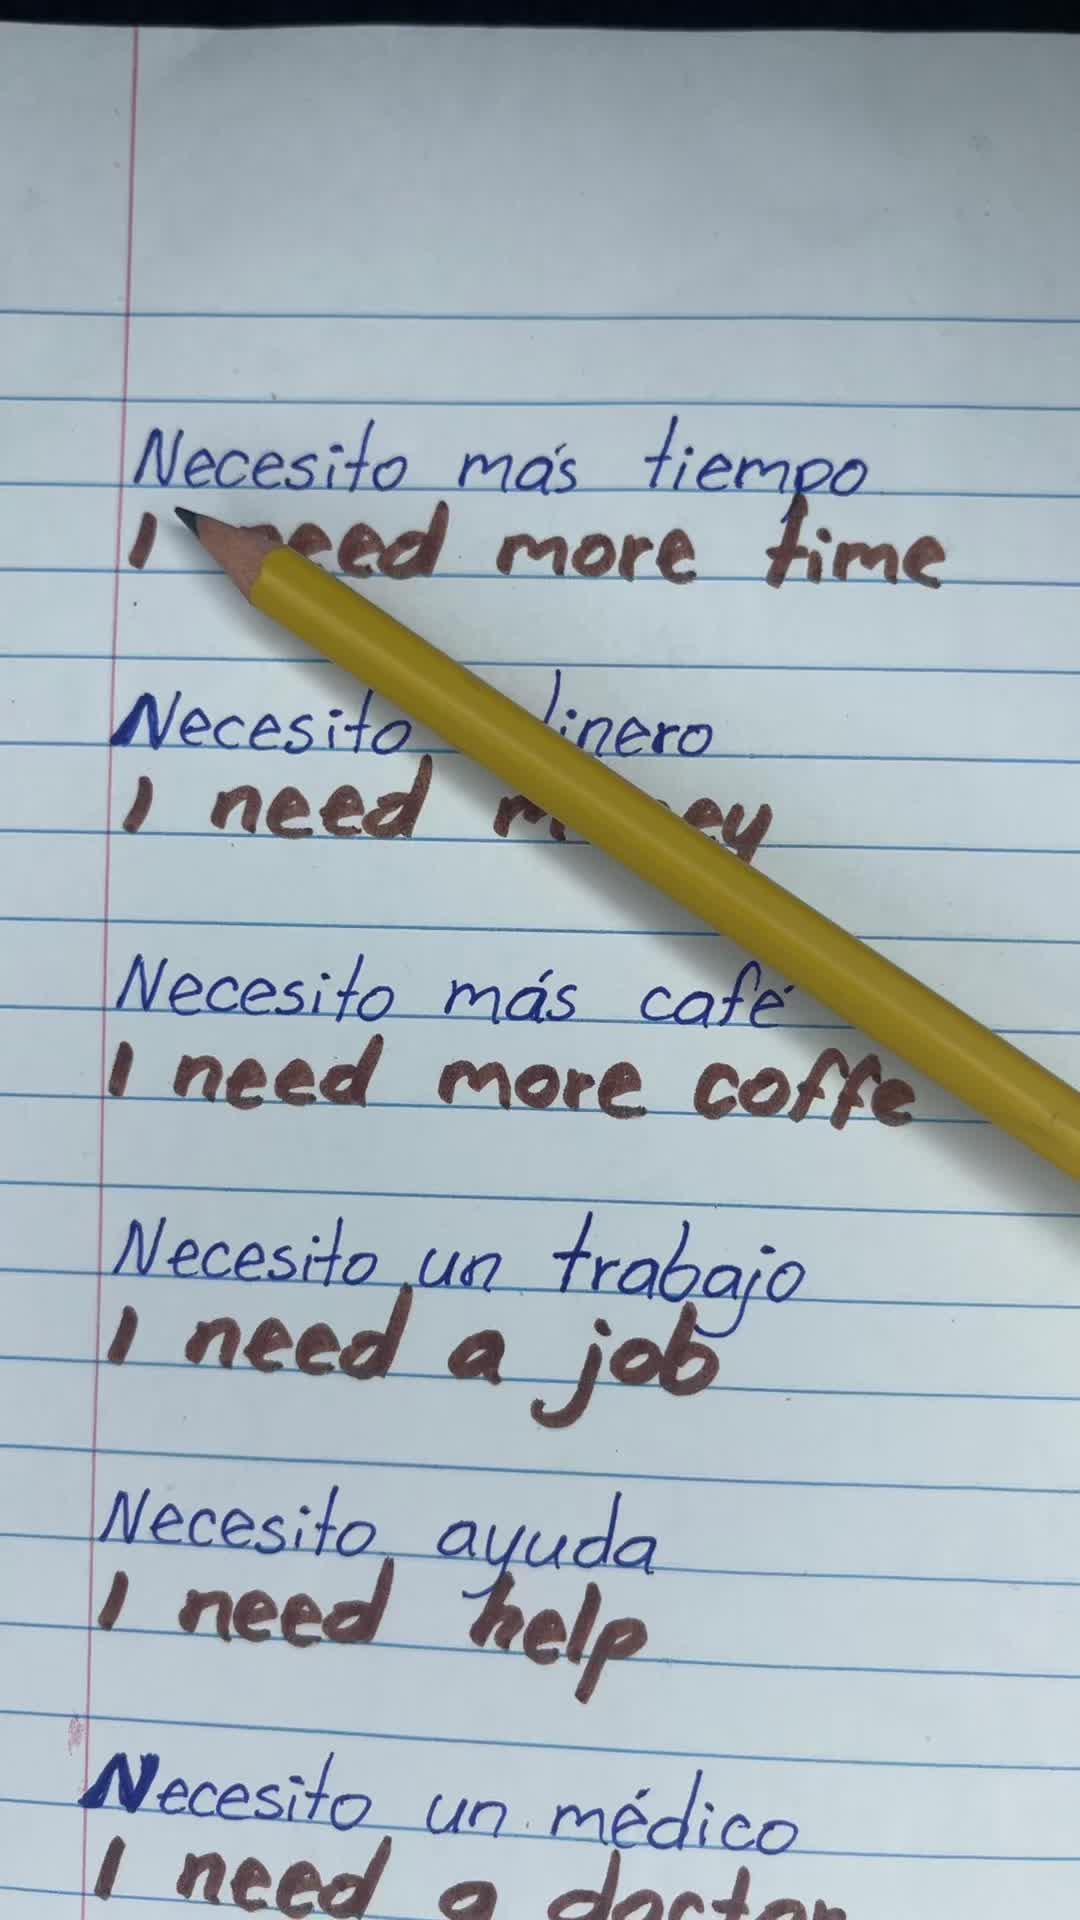 Necesito más tiempo
I need more time
Necesito dinero
I need money
Necesito más café
I need more coffe
Necesito un trabajo
I need a job
Necesito ayuda
I need help
Necesito un médico
I need a doctor